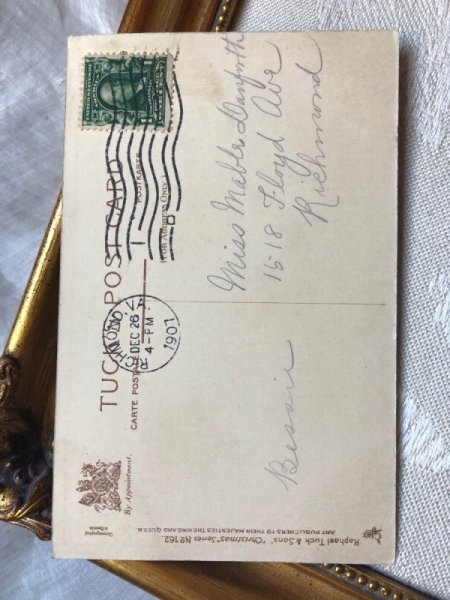 TUCK'S POST CARD
CARTE POSTALE
POSTKARTE
(FOR ADDRESS ONLY.)
By Appointment.
RICHMOND, VA.
DEC 26
4-PM
1907
Miss Mable Danforth
1518 Floyd Ave
Richmond
Bessie
Raphael Tuck & Sons' "Christmas" Series No 162.
ART PUBLISHERS TO THEIR MAJESTIES THE KING AND QUEEN.